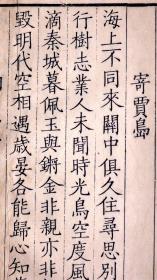 寄賈島
海上不同來關中俱久住尋思別
行樹志業人未聞時光鳥空度風
滴秦城暮佩玉與鏘金非親亦非
毀明代空相遇歲晏各能歸心知